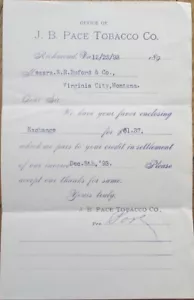 OFFICE OF
J. B. PACE TOBACCO CO.
Richmond, Va. 12/20/93 189
Messrs. S.R. Buford & Co.,
Virginia City, Montana.
Dear Sir
We have your favor enclosing
Exchange for $61.37,
which we pass to your credit in settlement
of our invoice Dec. 5th, '93. Please
accept our thanks for same.
Yours truly,
J B PACE TOBACCO CO.
PER